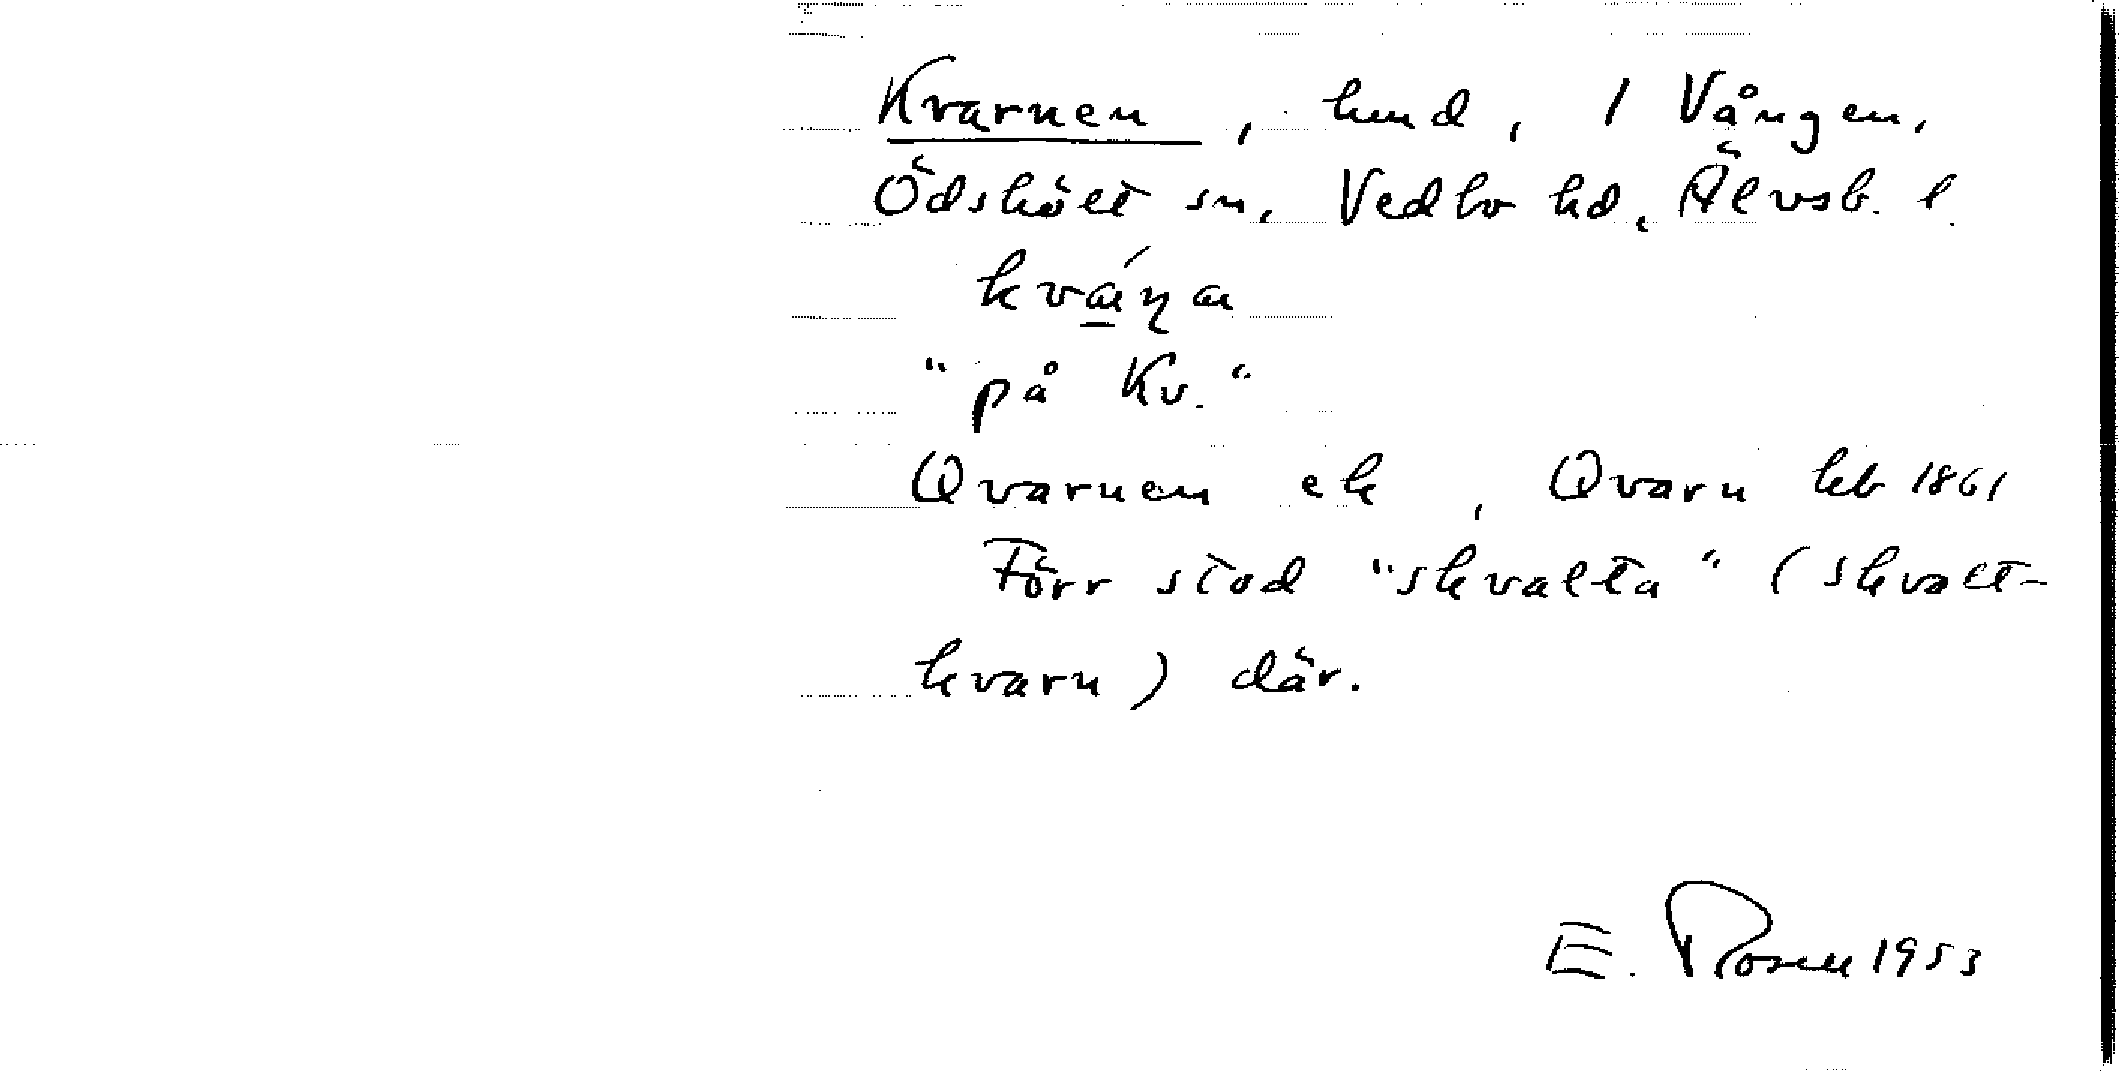 Kvarnen, lund, 1 Vången,
Ödskölt sn, Vedbo hd, Älvsb. l.
"på Kv."
Qvarnen ek, Qvarn kb 1861
Förr stod "skvalta" (skvalt-
kvarn) där.
E. Rosell 1953